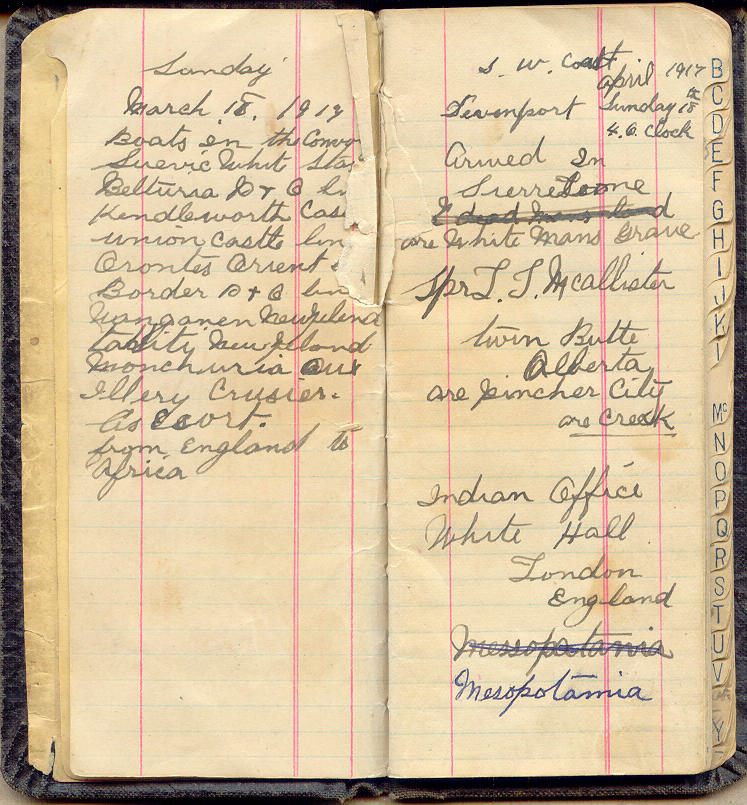 Sunday
March. 18. 1917
Boats in the Convo
Suevic Whit Sta
Belturia P + O lin
Kendleworth Cas
union Castle lin
Orontes Orient
Border P + O lin
New Zelend
tahiti New Zlland
Monchuria Aux
Illery Crusier.
As Escort.
from England to
Africa
S. W. Coast
april 1917
Devenport Sunday 18
4. O. Clock
Arived In
Sierre Leone
are White Mans Grave
Spr L. J. McAllister
twin Butte
Alberta
are Pincher City
are Creek
Indian Office
White Hall
London
England
Messopotamia
Mesopotamia
B
C
D
E
F
G
H
I
J
K
L
Mc
N
O
P
Q
R
S
T
U
V
Y